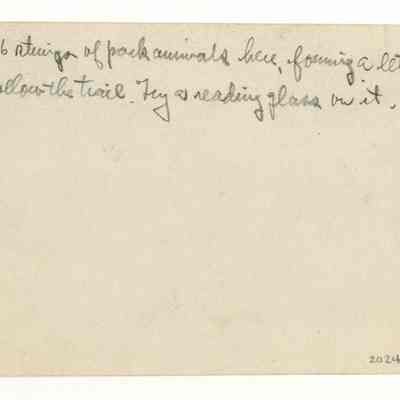 6 strings of pack animals here, forming a let
ollow the trail. Try a reading glass on it.
2024